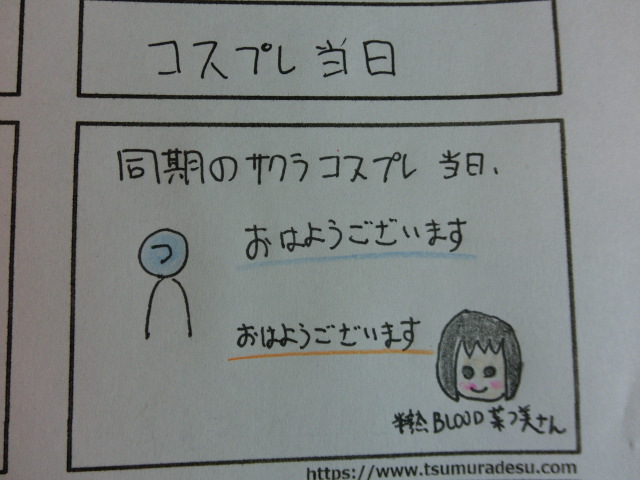 コスプレ当日
同期のサクラコスプレ 当日、
つ
おはようございます
おはようございます
BLOOD菜つ美さん
https://www.tsumuradesu.com